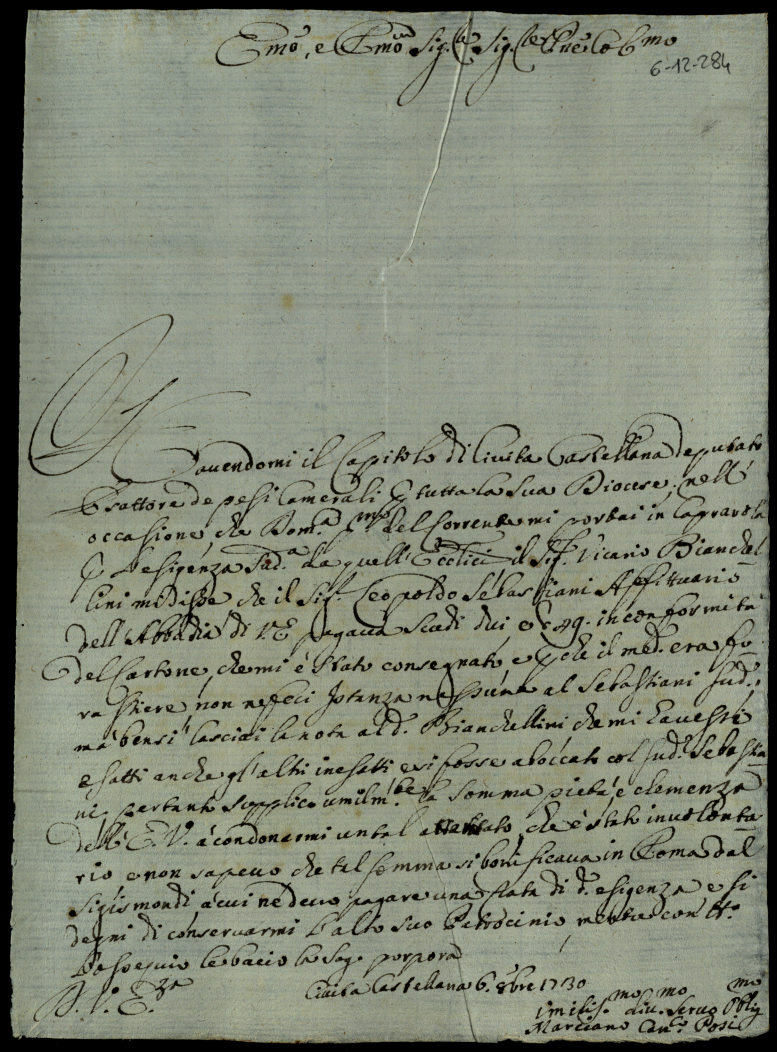 Emo, e Rmo Sig.re Sig.re
6-12-284
Havendomi il Capitolo di Civita Castellana deputato
Esattore de pesi Camerali p tutta la sua Diocese, nell'
occasione che Dom.a del Corrente mi portai in Capravola
p l'esigenza sud.a da quell' Ecclici il Sig.r Vicario Bianchel-
lini mi disse che il Sig.r Leopoldo Sebastiani Affittuario
dell'Abbadia di V E pagava scudi dui e 49. in conformità
del Cartone, che mi è stato consegnato, e p che il med.o era fo-
rastiere non ne feci Istanza nessuna al Sebastiani sud.o,
mà bensì lasciai la nota al d.o Bianchellini che mi havessi
esatti anche gl'altri inesatti e si fosse aboccato col sud.o Sebastia-
ni, pertanto supplico umilm.te la somma pietà e clemenza
dell' E.V. à condonarmi un tal attentato, che è stato involonta-
rio e non sapevo che tal somma si bonificava in Roma dal
Sigismondi à cui ne devo pagare una rata di d.a esigenza e si
degni di conservarmi l'alto suo Patrocinio mentre con
l'ossequio le bacio la Sag.a porpora
D. V. E.za
Civita Castellana 6. 8bre 1730
Umiliss.mo div.mo Servo Oblig.mo
Marciano Can.co Posi